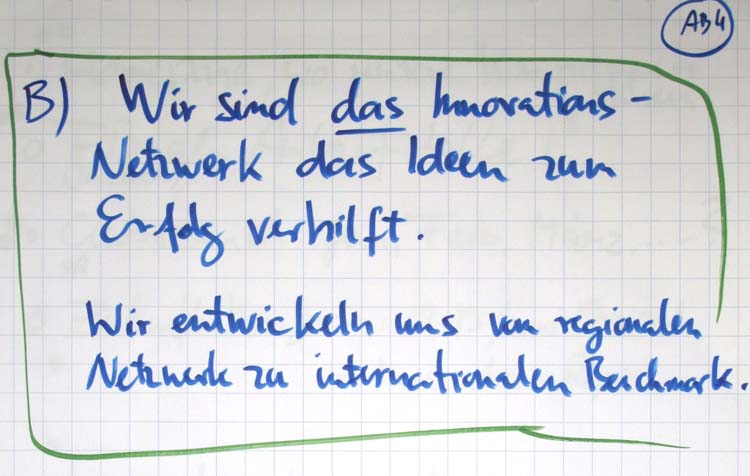 AB4
B) Wir sind das Innovations-
Netzwerk das Ideen zum
Erfolg verhilft.
Wir entwickeln uns vom regionalen
Netzwerk zu internationalen Benchmark.